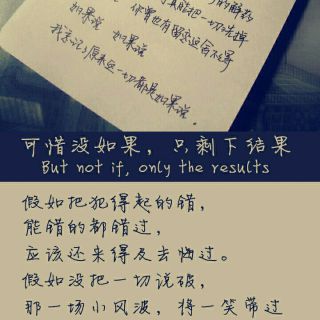 如果说 如果说
我忘记了原来这一切都是如果说。
可惜没如果，只剩下结果
But not if, only the results
假如把犯得起的错，
能错的都错过，
应该还来得及去悔过。
假如没把一切说破，
那一场小风波，将一笑带过